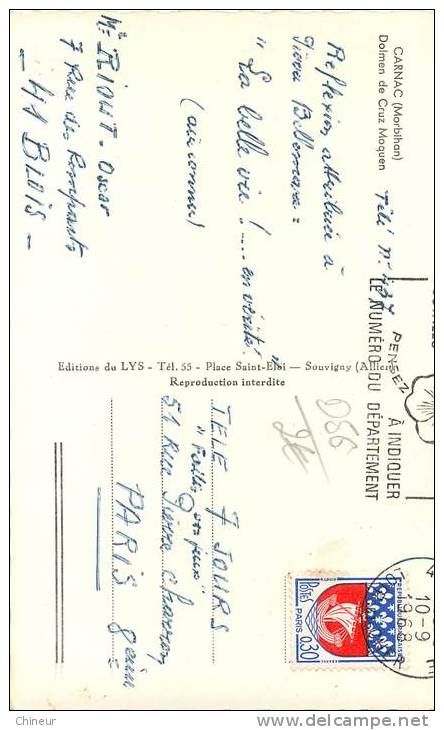 CARNAC (Morbihan)
Dolmen de Cruz Moquen
Télé N° 437
Reflexion attribuée à
Pierre Bellemare =
" La belle vie !.... en vérité! "
(air connu)
Mr RIOUT - Oscar
7 Rue des Remparts
- 41 BLOIS -
Editions du LYS - Tél. 55 - Place Saint-Eloi - Souvigny (Allier)
Reproduction interdite
PENSEZ
À INDIQUER
LE NUMÉRO DU DÉPARTEMENT
10-9
1968
REPUBLIQUE FRANÇAISE
POSTES
0,30
PARIS
TELE 7 JOURS
51 Rue Pierre Charron
PARIS 8ème
Chineur
www.delcampe.net